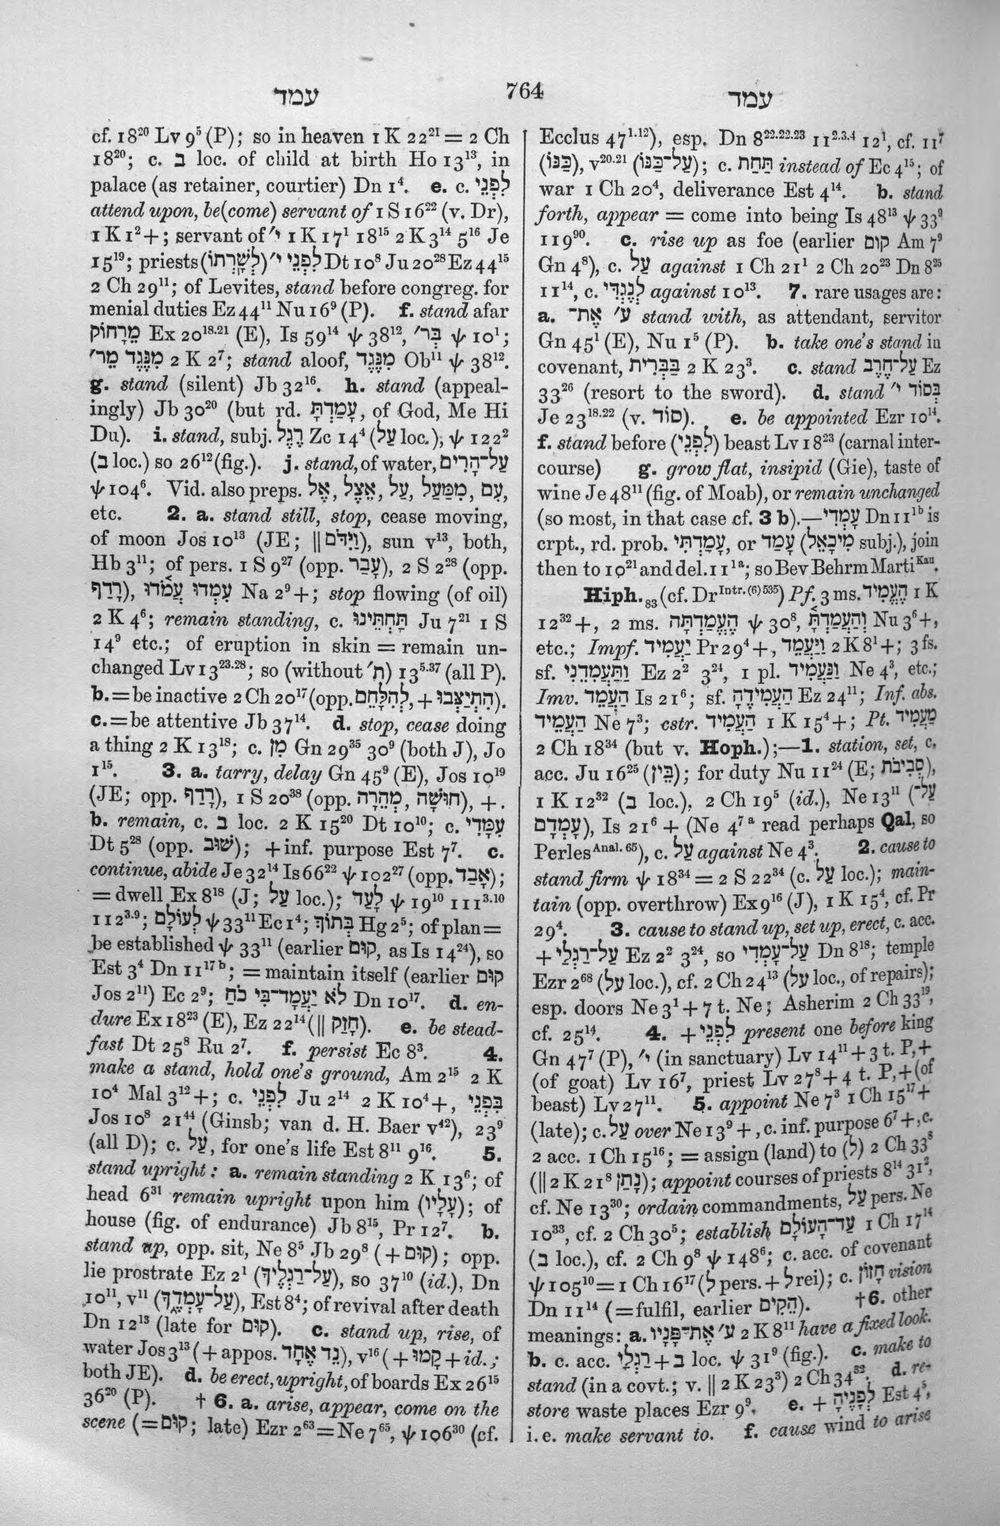 עמד
764
עמד
cf. 18²⁰ Lv 9⁵ (P); so in heaven 1 K 22²¹ = 2 Ch
18²⁰; c. בְּ loc. of child at birth Ho 13¹³, in
palace (as retainer, courtier) Dn 1⁴. e. c. לִפְנֵי
attend upon, be(come) servant of 1 S 16²² (v. Dr),
1 K 1²+; servant of י׳ 1 K 17¹ 18¹⁵ 2 K 3¹⁴ 5¹⁶ Je
15¹⁹; priests (לְשָׁרְתוֹ) לִפְנֵי י׳ Dt 10⁸ Ju 20²⁸ Ez 44¹⁵
2 Ch 29¹¹; of Levites, stand before congreg. for
menial duties Ez 44¹¹ Nu 16⁹ (P). f. stand afar
מֵרָחוֹק Ex 20¹⁸·²¹ (E), Is 59¹⁴ ψ 38¹², בְּר׳ ψ 10¹;
מִנֶּגֶד מֵר׳ 2 K 2⁷; stand aloof, מִנֶּגֶד Ob¹¹ ψ 38¹².
g. stand (silent) Jb 32¹⁶. h. stand (appeal-
ingly) Jb 30²⁰ (but rd. עָמַדְתָּ, of God, Me Hi
Du). i. stand, subj. רֶגֶל Zc 14⁴ (עַל loc.), ψ 122²
(בְּ loc.) so 26¹² (fig.). j. stand, of water, עַל־הָרִים
ψ 104⁶. Vid. also preps. אֶל, אֵצֶל, עַל, מִמַּעַל, עִם,
etc. 2. a. stand still, stop, cease moving,
of moon Jos 10¹³ (JE; ‖ וַיִּדֹּם), sun v¹³, both,
Hb 3¹¹; of pers. 1 S 9²⁷ (opp. עָבַר), 2 S 2²⁸ (opp.
רָדַף), עִמְדוּ עֲמֹדוּ Na 2⁹+; stop flowing (of oil)
2 K 4⁶; remain standing, c. תַּחְתֵּינוּ Ju 7²¹ 1 S
14⁹ etc.; of eruption in skin = remain un-
changed Lv 13²³·²⁸; so (without ת׳) 13⁵·³⁷ (all P).
b. = be inactive 2 Ch 20¹⁷ (opp. לְהִלָּחֵם, + הִתְיַצְּבוּ).
c. = be attentive Jb 37¹⁴. d. stop, cease doing
a thing 2 K 13¹⁸; c. מִן Gn 29³⁵ 30⁹ (both J), Jo
1¹⁵. 3. a. tarry, delay Gn 45⁹ (E), Jos 10¹⁹
(JE; opp. רָדַף), 1 S 20³⁸ (opp. מְהֵרָה, חוּשָׁה), +.
b. remain, c. בְּ loc. 2 K 15²⁰ Dt 10¹⁰; c. עִמָּדִי
Dt 5²⁸ (opp. שׁוּב); + inf. purpose Est 7⁷. c.
continue, abide Je 32¹⁴ Is 66²² ψ 102²⁷ (opp. אָבַד);
= dwell Ex 8¹⁸ (J; עַל loc.); לָעַד ψ 19¹⁰ 111³·¹⁰
112³·⁹; לְעוֹלָם ψ 33¹¹ Ec 1⁴; בְּתוֹךְ Hg 2⁵; of plan =
be established ψ 33¹¹ (earlier קוּם, as Is 14²⁴), so
Est 3⁴ Dn 11¹⁷ᵇ; = maintain itself (earlier קוּם
Jos 2¹¹) Ec 2⁹; לֹא יַעֲמָד־בִּי כֹחַ Dn 10¹⁷. d. en-
dure Ex 18²³ (E), Ez 22¹⁴ (‖ חָזַק). e. be stead-
fast Dt 25⁸ Ru 2⁷. f. persist Ec 8³. 4.
make a stand, hold one's ground, Am 2¹⁵ 2 K
10⁴ Mal 3¹²+; c. לִפְנֵי Ju 2¹⁴ 2 K 10⁴+, בִּפְנֵי
Jos 10⁸ 21⁴⁴ (Ginsb; van d. H. Baer v⁴²), 23⁹
(all D); c. עַל, for one's life Est 8¹¹ 9¹⁶. 5.
stand upright: a. remain standing 2 K 13⁶; of
head 6³¹ remain upright upon him (עָלָיו); of
house (fig. of endurance) Jb 8¹⁵, Pr 12⁷. b.
stand up, opp. sit, Ne 8⁵ Jb 29⁸ (+קוּם); opp.
lie prostrate Ez 2¹ (עַל־רַגְלֶיךָ), so 37¹⁰ (id.), Dn
10¹¹, v¹¹ (עַל־עָמְדֶךָ), Est 8⁴; of revival after death
Dn 12¹³ (late for קוּם). c. stand up, rise, of
water Jos 3¹³ (+ appos. נֵד אֶחָד), v¹⁶ (+ קָמוּ + id.;
both JE). d. be erect, upright, of boards Ex 26¹⁵
36²⁰ (P). † 6. a. arise, appear, come on the
scene (= קוּם; late) Ezr 2⁶³ = Ne 7⁶⁵, ψ 106³⁰ (cf.
Ecclus 47¹·¹²), esp. Dn 8²²·²²·²³ 11²·³·⁴ 12¹, cf. 11⁷
(כַּנּוֹ), v²⁰·²¹ (עַל־כַּנּוֹ); c. תַּחַת instead of Ec 4¹⁵; of
war 1 Ch 20⁴, deliverance Est 4¹⁴. b. stand
forth, appear = come into being Is 48¹³ ψ 33⁹
119⁹⁰. c. rise up as foe (earlier קום Am 7⁹
Gn 4⁸), c. עַל against 1 Ch 21¹ 2 Ch 20²³ Dn 8²⁵
11¹⁴, c. לְנֶגְדִּי against 10¹³. 7. rare usages are:
a. ע׳ אֶת־ stand with, as attendant, servitor
Gn 45¹ (E), Nu 1⁵ (P). b. take one's stand in
covenant, בַּבְּרִית 2 K 23³. c. stand עַל־חֶרֶב Ez
33²⁶ (resort to the sword). d. stand בְּסוֹד י׳
Je 23¹⁸·²² (v. סוֹד). e. be appointed Ezr 10¹⁴.
f. stand before (לִפְנֵי) beast Lv 18²³ (carnal inter-
course) g. grow flat, insipid (Gie), taste of
wine Je 48¹¹ (fig. of Moab), or remain unchanged
(so most, in that case cf. 3 b).—עָמְדִי Dn 11¹ᵇ is
crpt., rd. prob. עָמַדְתִּי, or עָמַד (מִיכָאֵל subj.), join
then to 10²¹ and del. 11¹ᵃ; so Bev Behrm Marti ᴷᵃᵘ.
Hiph.₈₃ (cf. Dr ᴵⁿᵗʳ·⁽⁶⁾ ⁵³⁵) Pf. 3 ms. הֶעֱמִיד 1 K
12³²+, 2 ms. הֶעֱמַדְתָּה ψ 30⁸, וְהַעֲמַדְתָּ Nu 3⁶+,
etc.; Impf. יַעֲמִיד Pr 29⁴+, וַיַּעֲמֵד 2 K 8¹+; 3 fs.
sf. וַתַּעֲמִדֵנִי Ez 2² 3²⁴, 1 pl. וַנַּעֲמִיד Ne 4³, etc.;
Imv. הַעֲמֵד Is 21⁶; sf. הַעֲמִידָהּ Ez 24¹¹; Inf. abs.
הַעֲמֵיד Ne 7³; cstr. הַעֲמִיד 1 K 15⁴+; Pt. מַעֲמִיד
2 Ch 18³⁴ (but v. Hoph.);—1. station, set, c.
acc. Ju 16²⁵ (בֵּין); for duty Nu 11²⁴ (E; סְבִיבֹת),
1 K 12³² (בְּ loc.), 2 Ch 19⁵ (id.), Ne 13¹¹ (עַל־
עָמְדָם), Is 21⁶ + (Ne 4⁷ᵃ read perhaps Qal, so
Perles ᴬⁿᵃˡ· ⁶⁵), c. עַל against Ne 4³. 2. cause to
stand firm ψ 18³⁴ = 2 S 22³⁴ (c. עַל loc.); main-
tain (opp. overthrow) Ex 9¹⁶ (J), 1 K 15⁴, cf. Pr
29⁴. 3. cause to stand up, set up, erect, c. acc.
+ עַל־רַגְלַי Ez 2² 3²⁴, so עַל־עָמְדִי Dn 8¹⁸; temple
Ezr 2⁶⁸ (עַל loc.), cf. 2 Ch 24¹³ (עַל loc., of repairs);
esp. doors Ne 3¹ + 7 t. Ne; Asherim 2 Ch 33¹⁹,
cf. 25¹⁴. 4. + לִפְנֵי present one before king
Gn 47⁷ (P), י׳ (in sanctuary) Lv 14¹¹ + 3 t. P, +
(of goat) Lv 16⁷, priest Lv 27⁸ + 4 t. P, + (of
beast) Lv 27¹¹. 5. appoint Ne 7³ 1 Ch 15¹⁷ +
(late); c. עַל over Ne 13⁹ +, c. inf. purpose 6⁷ +, c.
2 acc. 1 Ch 15¹⁶; = assign (land) to (לְ) 2 Ch 33⁸
(‖ 2 K 21⁸ נָתַן); appoint courses of priests 8¹⁴ 31²,
cf. Ne 13³⁰; ordain commandments, עַל pers. Ne
10³³, cf. 2 Ch 30⁵; establish עַד־הָעוֹלָם 1 Ch 17¹⁴
(בְּ loc.), cf. 2 Ch 9⁸ ψ 148⁶; c. acc. of covenant
ψ 105¹⁰ = 1 Ch 16¹⁷ (לְ pers. + לְ rei); c. חָזוֹן vision
Dn 11¹⁴ (= fulfil, earlier הֵקִים). † 6. other
meanings: a. ע׳ אֶת־פָּנָיו 2 K 8¹¹ have a fixed look.
b. c. acc. רַגְלַי + בְּ loc. ψ 31⁹ (fig.). c. make to
stand (in a covt.; v. ‖ 2 K 23³) 2 Ch 34³². d. re-
store waste places Ezr 9⁹. e. + לְפָנֶיהָ Est 4⁵,
i.e. make servant to. f. cause wind to arise